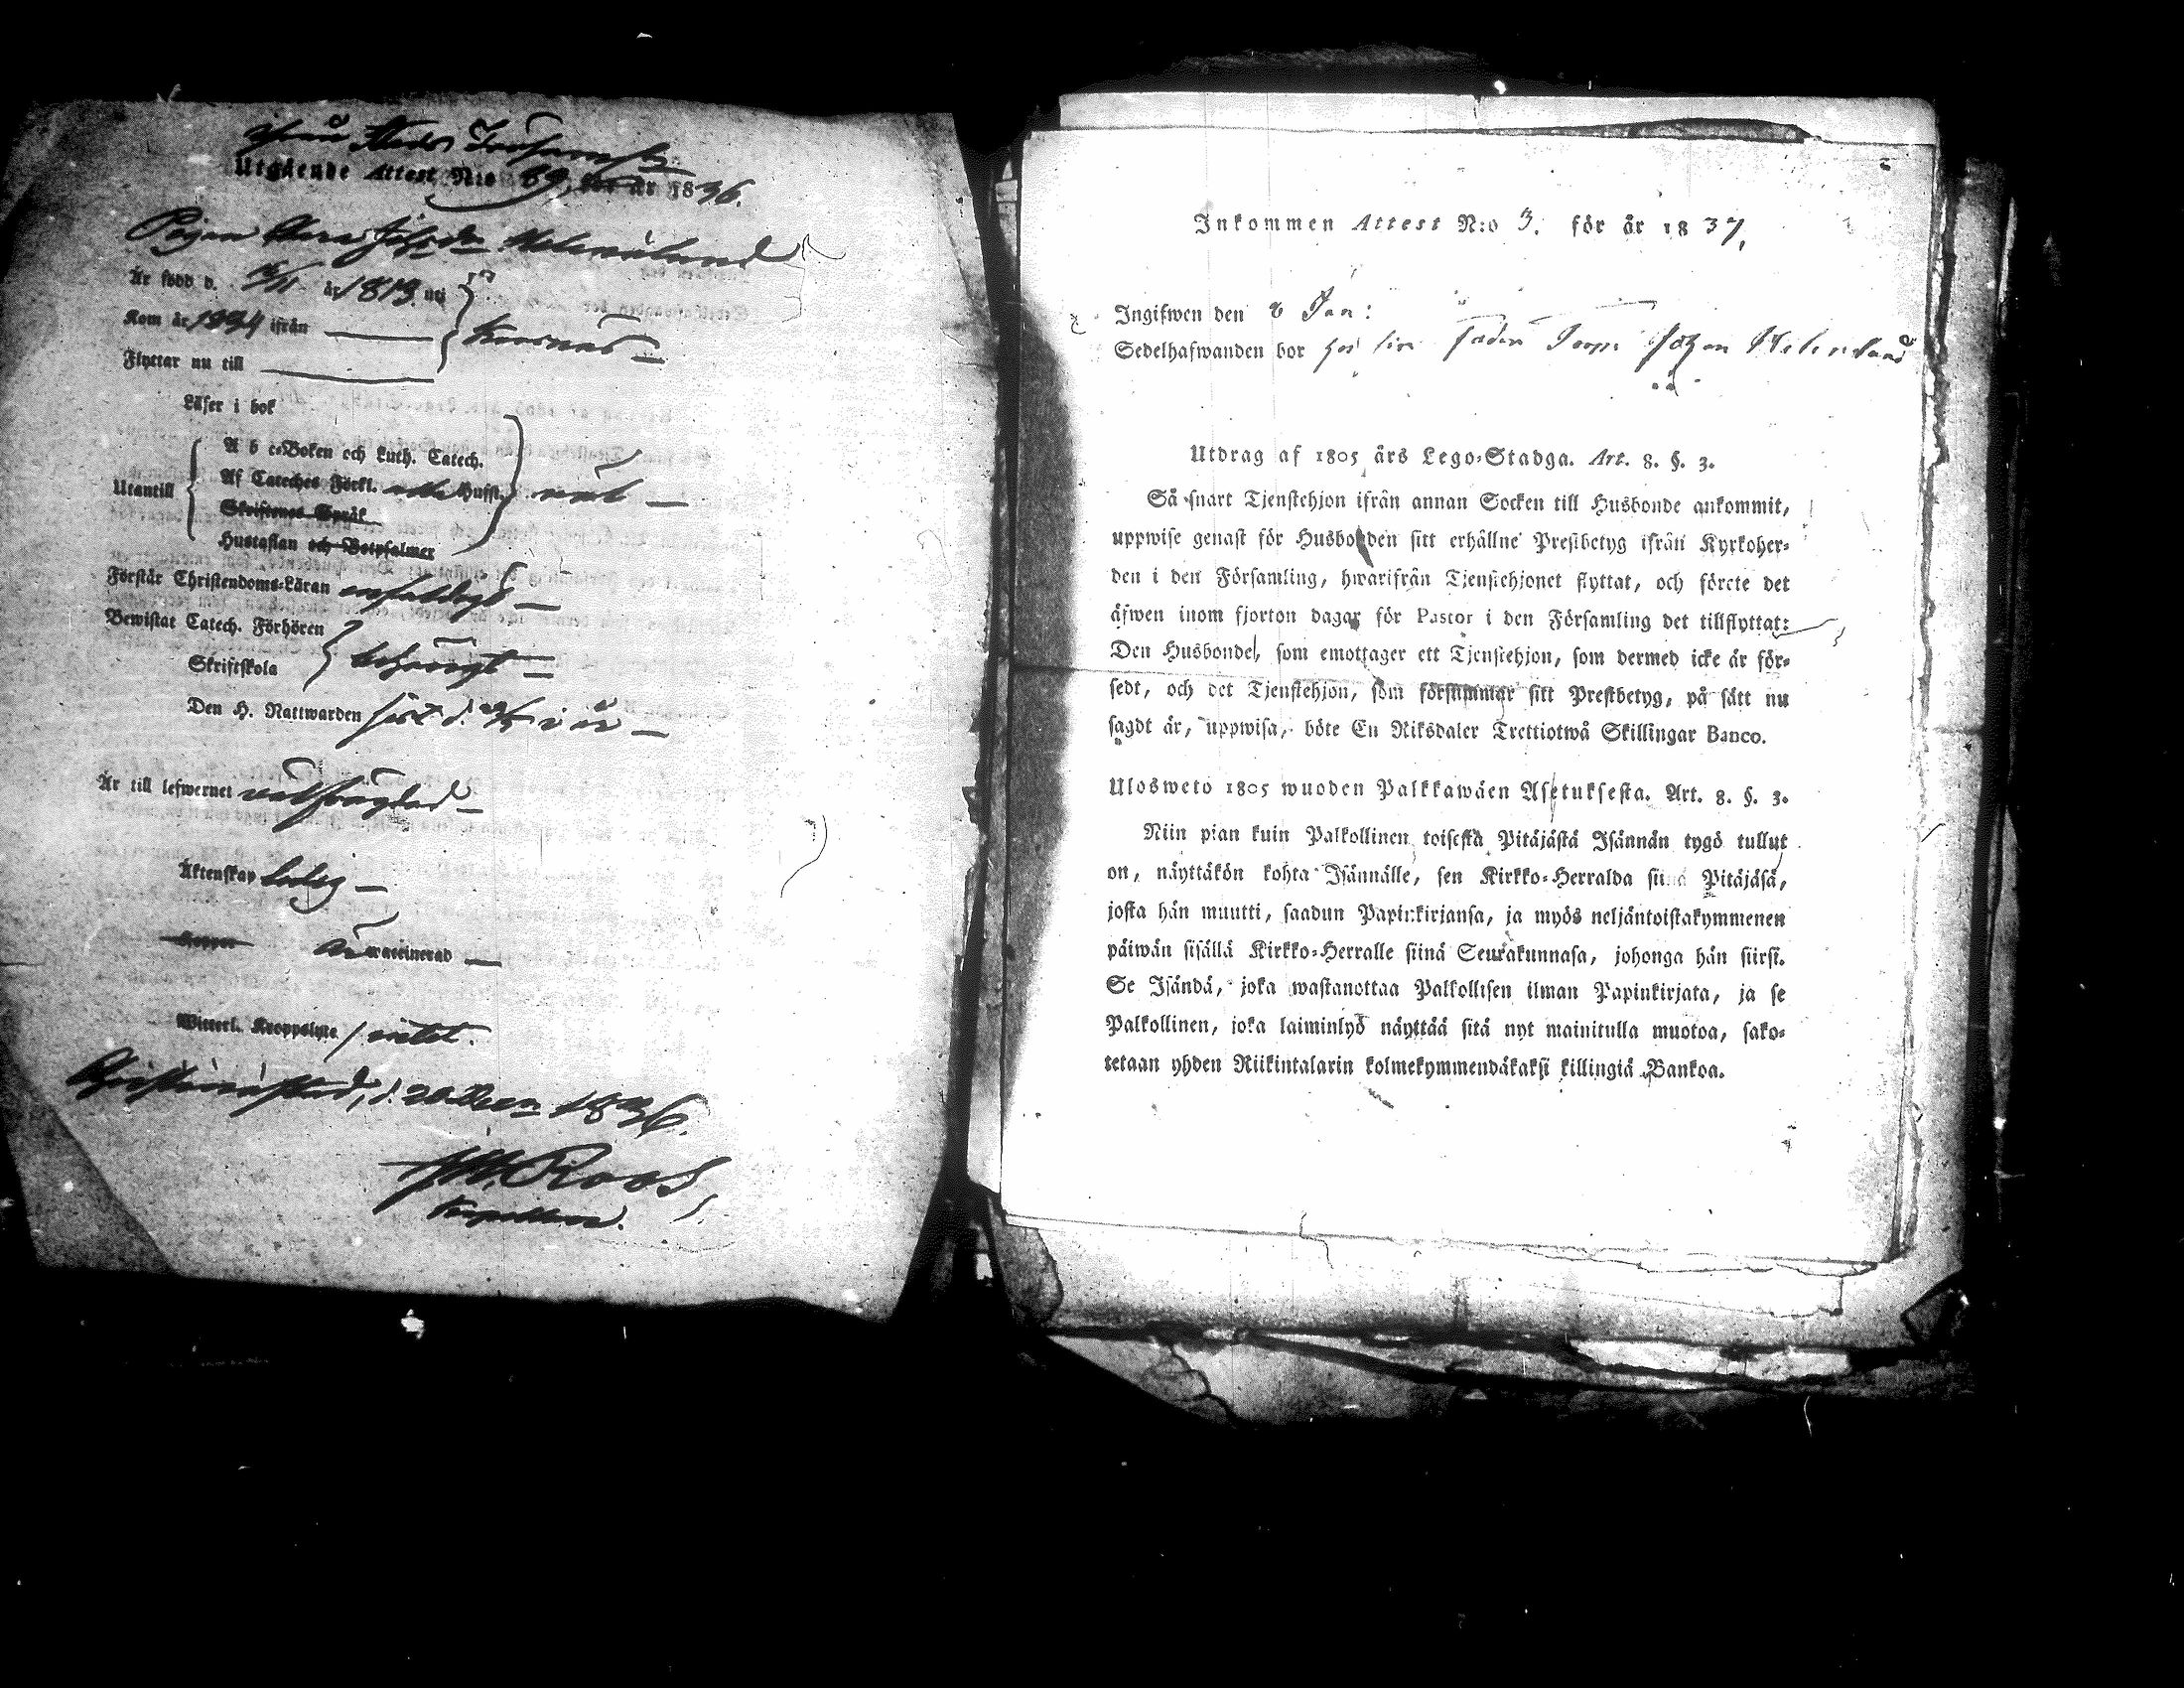 Ifrån Stadsförsaml:
Utgående Attest N:o 69, för år 1836.
Pigan Helenelund
Är född d. år 1813 uti
Kom år 1834 ifrån
Korsnäs
Flyttar nu till
Läser i bok
A b c-Boken och Luth. Catech.
Utantill
Af Cateches Förkl. alla Hufst.
väl
Skriftenes Språk
Hustaflan och Botpsalmer
Förstår Christendoms-Läran enfaldigt
Bewistat Catech. Förhören
Skriftskola
behörigt
Den H. Nattwarden sist d. i år
Är till lefwernet välfrägdad
Äktenskap ledig
Koppor Är waccinerad
Witterl. Kroppslyte / intet.
Christinestad, d. 20 Decem 1836.
Roos,
Kapellan.
Inkommen Attest N:o 3. för år 1837.
Ingifwen den 8 Jan:
Sedelhafwanden bor hos sin fader Torp. Johan Helenelund
Utdrag af 1805 års Lego-Stadga. Art. 8. §. 3.
Så snart Tjenstehjon ifrån annan Socken till Husbonde ankommit,
uppwise genast för Husbonden sitt erhållne Prestbetyg ifrån Kyrkoher-
den i den Församling, hwarifrån Tjenstehjonet flyttat, och förete det
äfwen inom fjorton dagar för Pastor i den Församling det tillflyttat:
Den Husbonde, som emottager ett Tjenstehjon, som dermed icke är för-
sedt, och det Tjenstehjon, som försummar sitt Prestbetyg, på sätt nu
sagdt är, uppwisa, böte En Riksdaler Trettiotwå Skillingar Banco.
Ulosweto 1805 wuoden Palkkawäen Asetuksesta. Art. 8. §. 3.
Niin pian kuin Palkollinen toisesta Pitäjästä Isännän tygö tullut
on, näyttäkön kohta Isännälle, sen Kirkko-Herralda siinä Pitäjäsä,
josta hän muutti, saadun Papinkirjansa, ja myös neljäntoistakymmenen
päiwän sisällä Kirkko-Herralle siinä Seurakunnasa, johonga hän siirst.
Se Isändä, joka wastanottaa Palkollisen ilman Papinkirjata, ja se
Palkollinen, joka laiminlyö näyttää sitä nyt mainitulla muotoa, sako-
tetaan yhden Riikintalarin kolmekymmendäkaksi killingiä Bankoa.